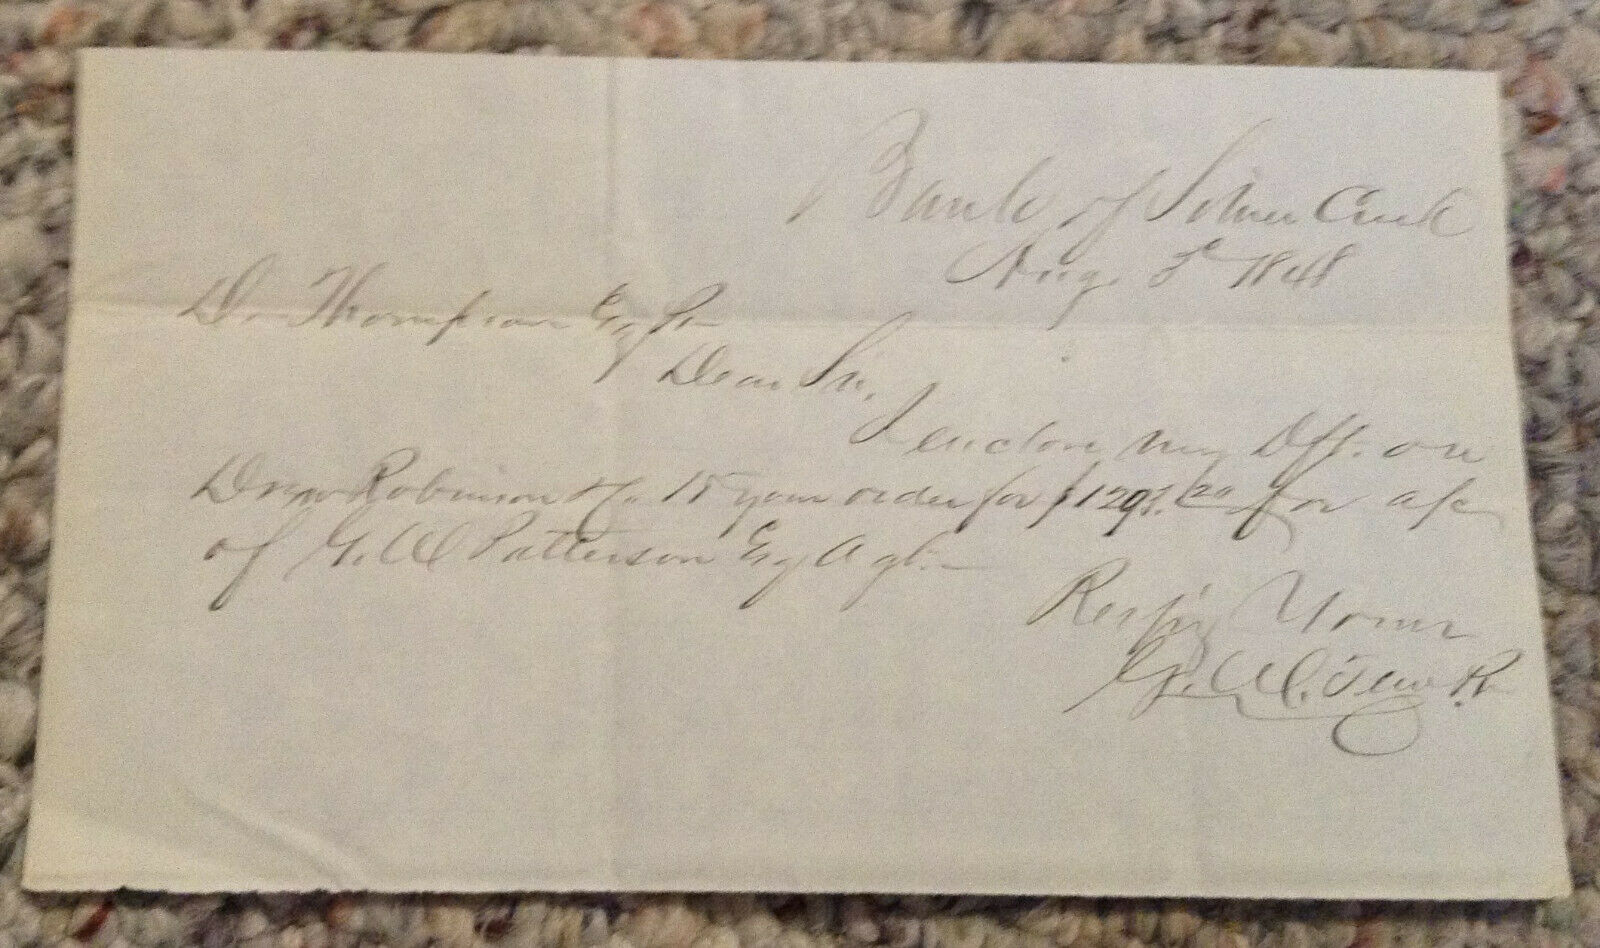 Bank of Silver Creek
Aug. 5th 1848
D. Thompson Esq Pr
Dear Sir,
I enclose my Dft. on
Drew Robinson & Co to your order for $129. for a/c
of G. W. Patterson Esq Agt.
Respy Yours
G. W. Tew Pr